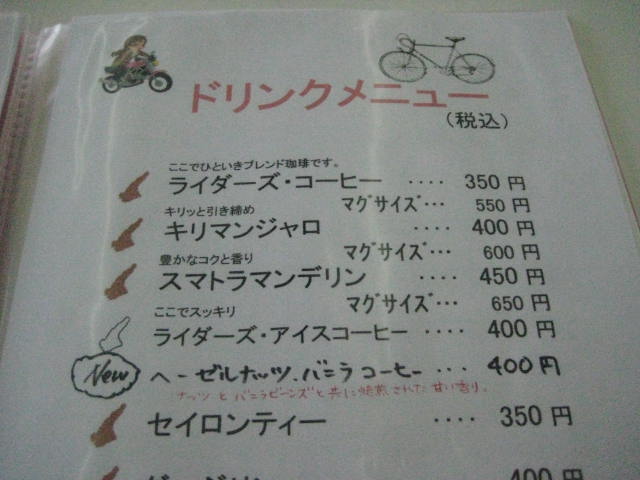 ドリンクメニュー
(税込)
ここでひといきブレンド珈琲です。
ライダーズ・コーヒー ････ 350 円
マグサイズ･･･ 550 円
キリッと引き締め
キリマンジャロ ････ 400 円
マグサイズ･･･ 600 円
豊かなコクと香り
スマトラマンデリン ････ 450 円
マグサイズ･･･ 650 円
ここでスッキリ
ライダーズ・アイスコーヒー ････ 400 円
New ヘーゼルナッツ.バニラコーヒー ･･･ 400円
ナッツとバニラビーンズと共に焙煎された甘い香り。
セイロンティー ････ 350 円
400 円